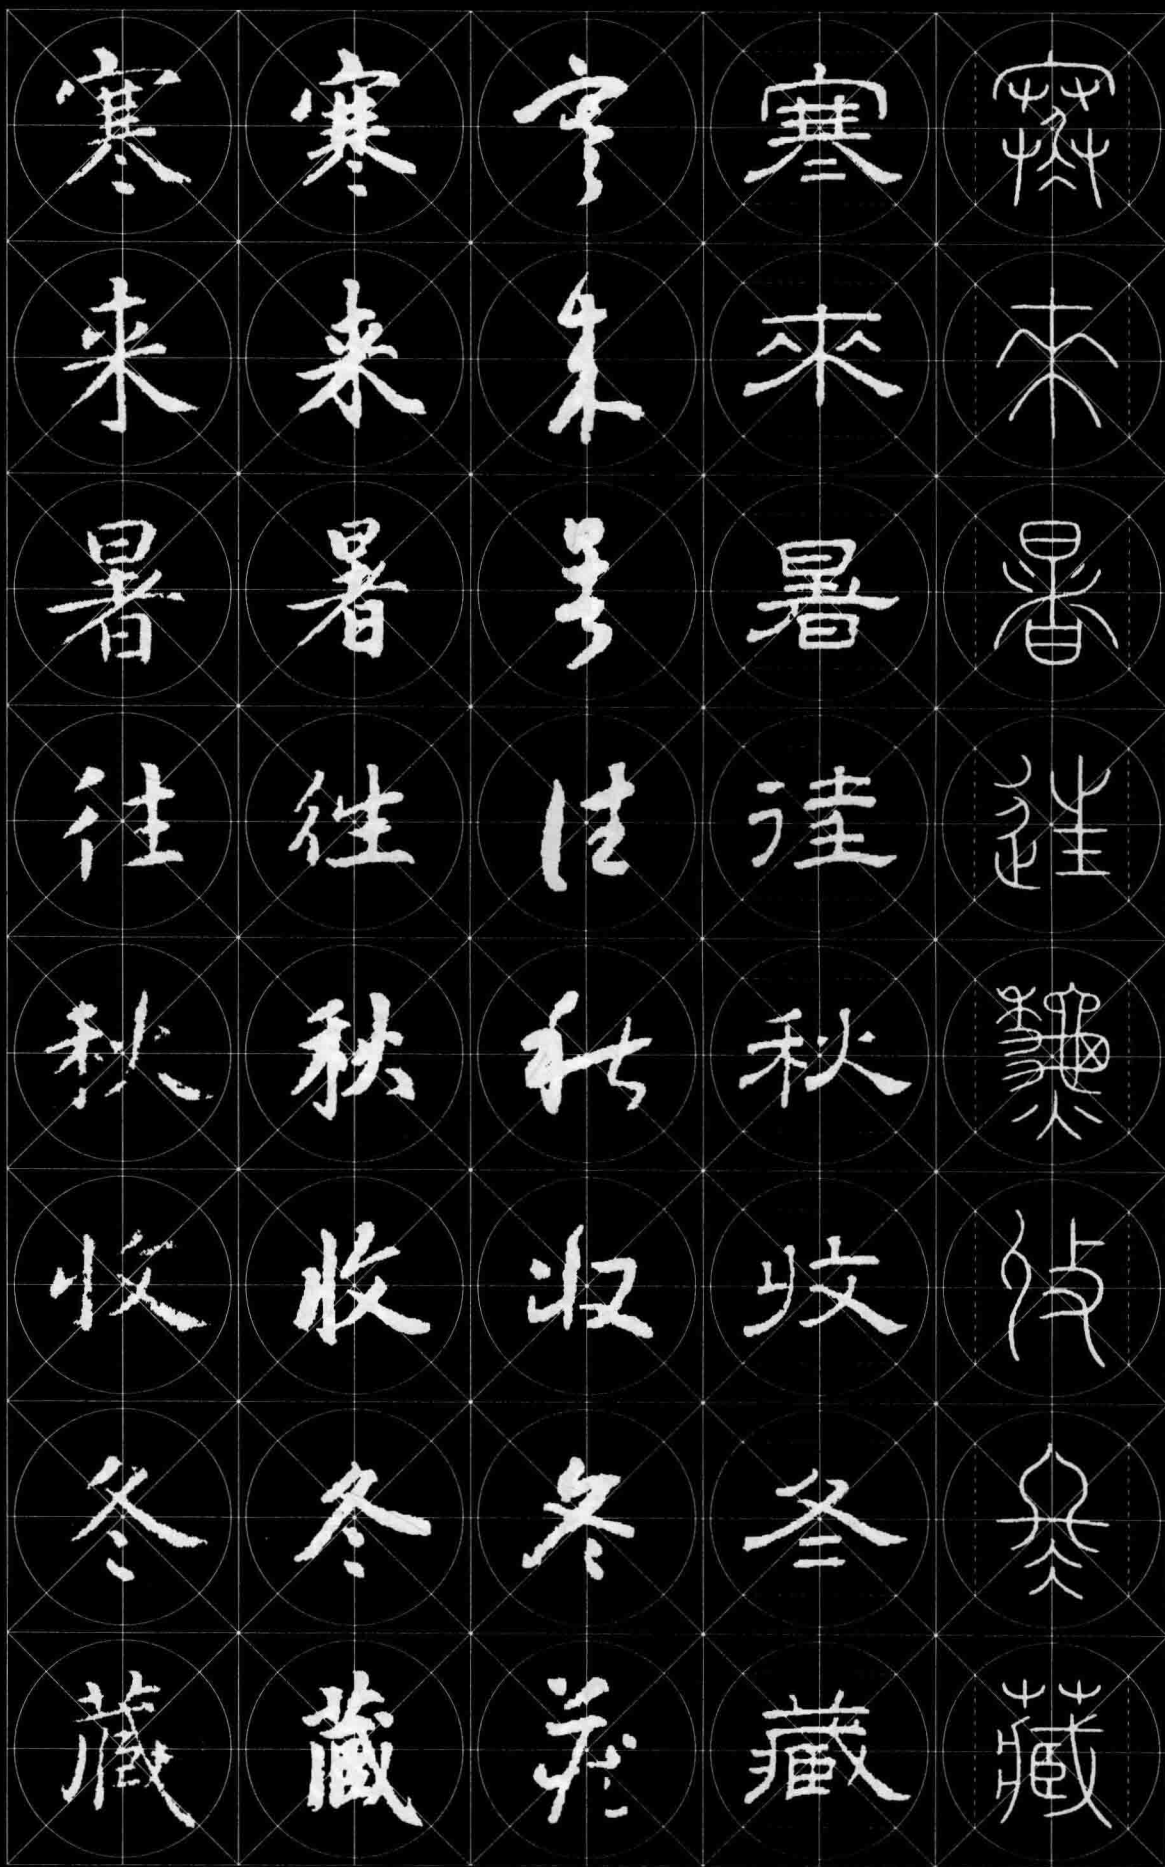 寒來暑往秋收冬藏
寒來暑往秋收冬藏
寒来暑往秋收冬藏
寒来暑往秋收冬藏
寒来暑往秋收冬藏